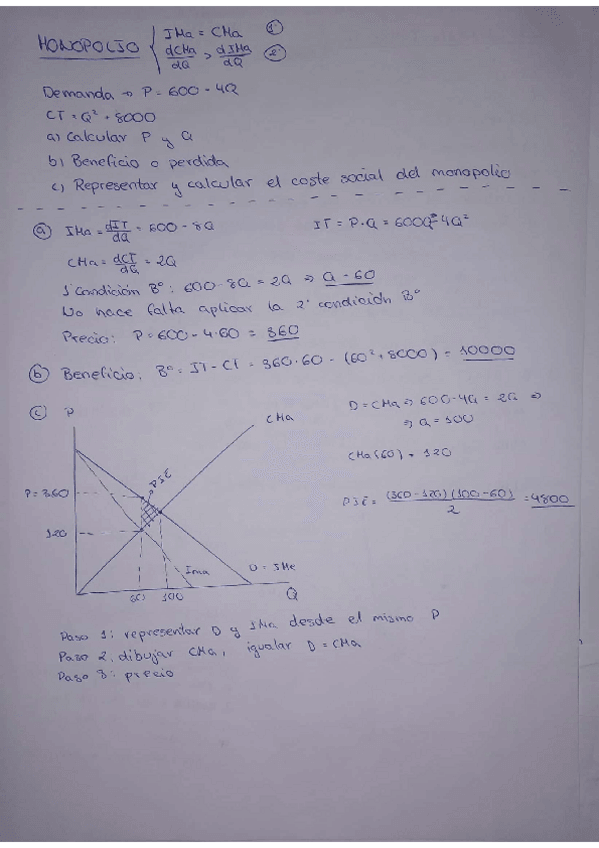 MONOPOLIO { IMa = CMa 1º
dCMa/dQ > dIMa/dQ 2º
Demanda → P = 600 - 4Q
CT = Q² + 8000
a) Calcular P y Q
b) Beneficio o perdida
c) Representar y calcular el coste social del monopolio
a) IMa = dIT/dQ = 600 - 8Q IT = P·Q = 600Q - 4Q²
CMa = dCT/dQ = 2Q
1ª Condición Bº: 600 - 8Q = 2Q ⇒ Q = 60
No hace falta aplicar la 2ª condición Bº
Precio: P = 600 - 4·60 = 360
b) Beneficio: Bº = IT - CT = 360·60 - (60² + 8000) = 10000
c) P
CMa
D = CMa ⇒ 600 - 4Q = 2Q ⇒
⇒ Q = 100
CMa(60) = 120
PSE
P = 360
PSE = (360 - 120)(100 - 60)/2 = 4800
120
Ima
D = IMe
60 100 Q
Paso 1: representar D y IMa desde el mismo P
Paso 2: dibujar CMa, igualar D = CMa
Paso 3: precio